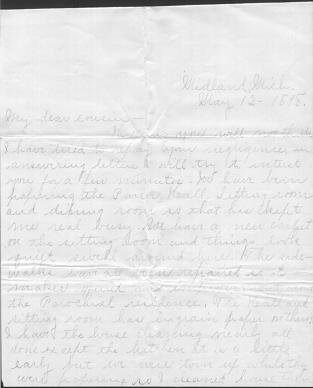 Midland, Mich.
May 12- 
My dear cousin—
you will
I have tried to your negligence in
answering letters I will try to
you for a few minutes. We have been
papering the Parlor, Hall, Sitting room
and dining room so that has kept
me real busy. We have a new carpet
on the sitting room and things look
quite swell around here. The side
walks have all been repaired
makes
the Parochial residence. The Hall and
sitting room has Ingrain paper
I have the house cleaning nearly all
done except the kitchen It is a little
early but we were torn up while they
were papering so I cleaned house